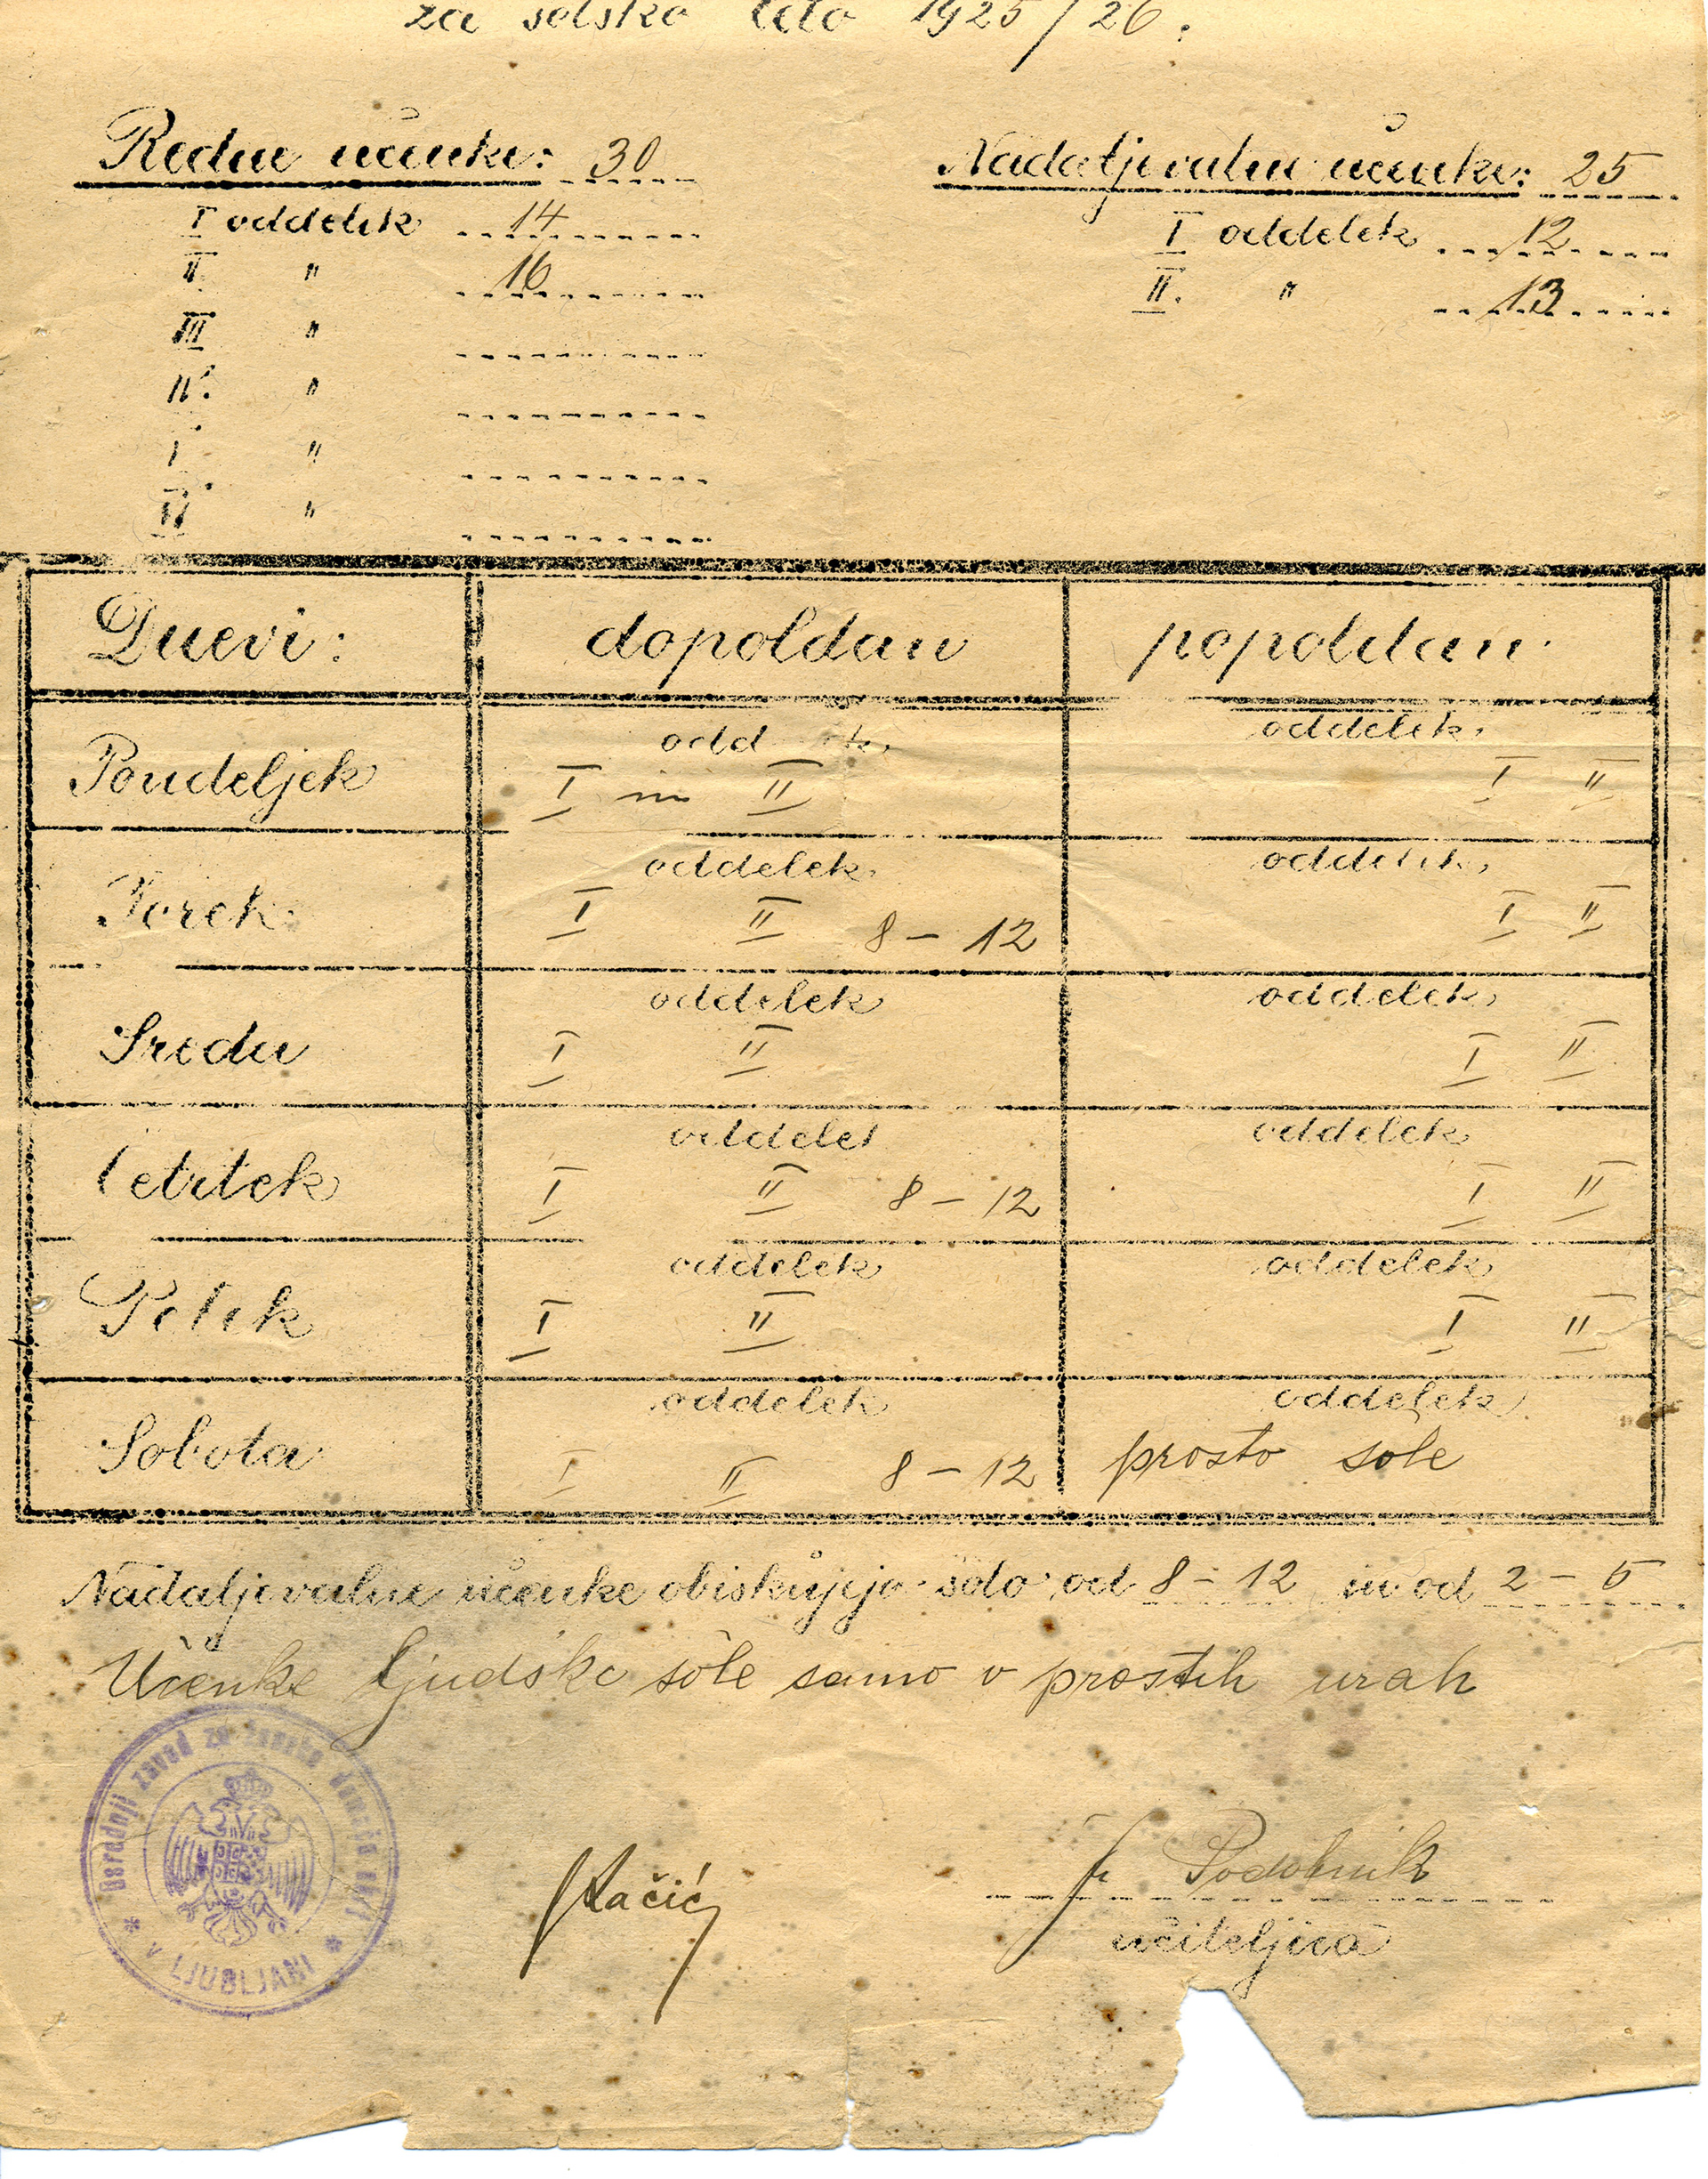 za šolsko leto 1925/26.
Redne učenke: 30
Nadaljevalne učenke: 25
I oddelek 14
I oddelek 12
II. " 16
II. " 13
III "
IV. "
V "
VI "
Dnevi: dopoldan popoldan
Pondeljek oddelek, oddelek,
I in II I II
Torek oddelek, oddelek,
I II 8 - 12 I II
Sreda oddelek oddelek,
I II I II
Četrtek oddelek oddelek
I II 8 - 12 I II
Petek oddelek oddelek
I II I II
Sobota oddelek oddelek
I II 8 - 12 prosto šole
Nadaljevalne učenke obiskujejo šolo od 8 - 12 in od 2 - 5
Učenke ljudske šole samo v prostih urah
Osrednji zavod za žensko domačo obrt
* V LJUBLJANI *
Račič
Podobnik
učiteljica